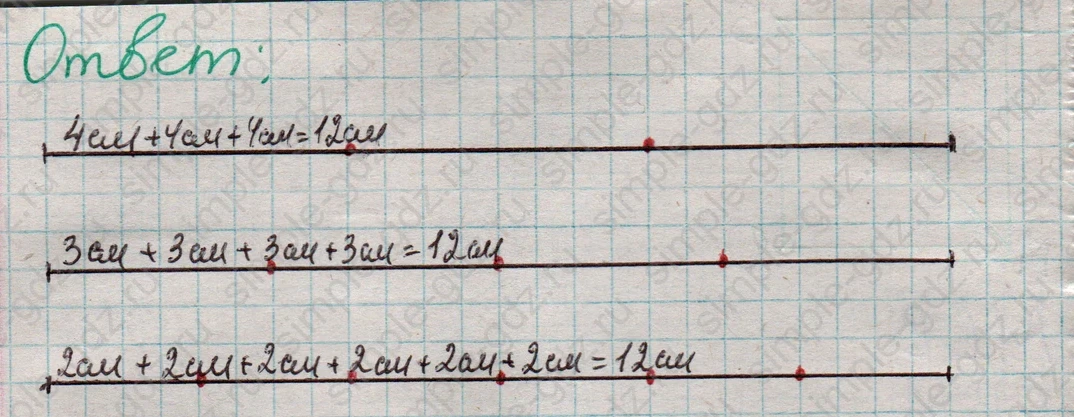 Ответ:
4см+4см+4см=12см
3см + 3см + 3см + 3см = 12см
2см + 2см + 2см + 2см + 2см + 2см = 12см